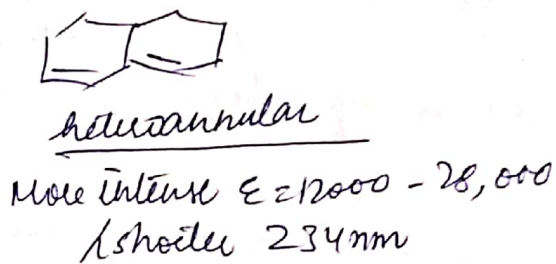 heteroannular
More intense ε = 12000 - 28,000
λ shorter 234nm